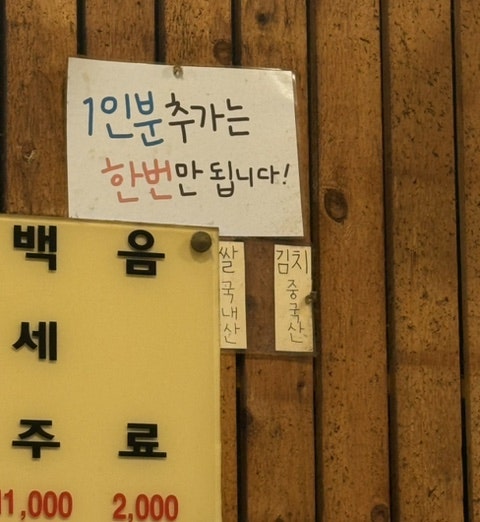 1인분 추가는
한번만 됩니다!
쌀 국내산
김치 중국산
백세주
음료
11,000
2,000